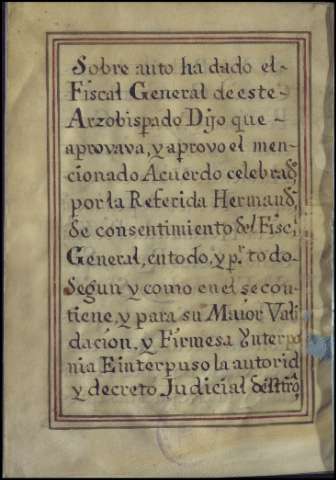 Sobre auto ha dado el-
Fiscal General de este-
Arzobispado Dijo que-
aprovava, y aprovo el men-
cionado Acuerdo celebrad.
por la Referida Hermand,
de consentimiento del Fisci
General, en todo, y pr. todo-
Segun y como en el se con-
tiene, y para su Maior Vali
dacion, y Firmesa Ynterpo
nia E interpuso la autorid
y decreto Judicial